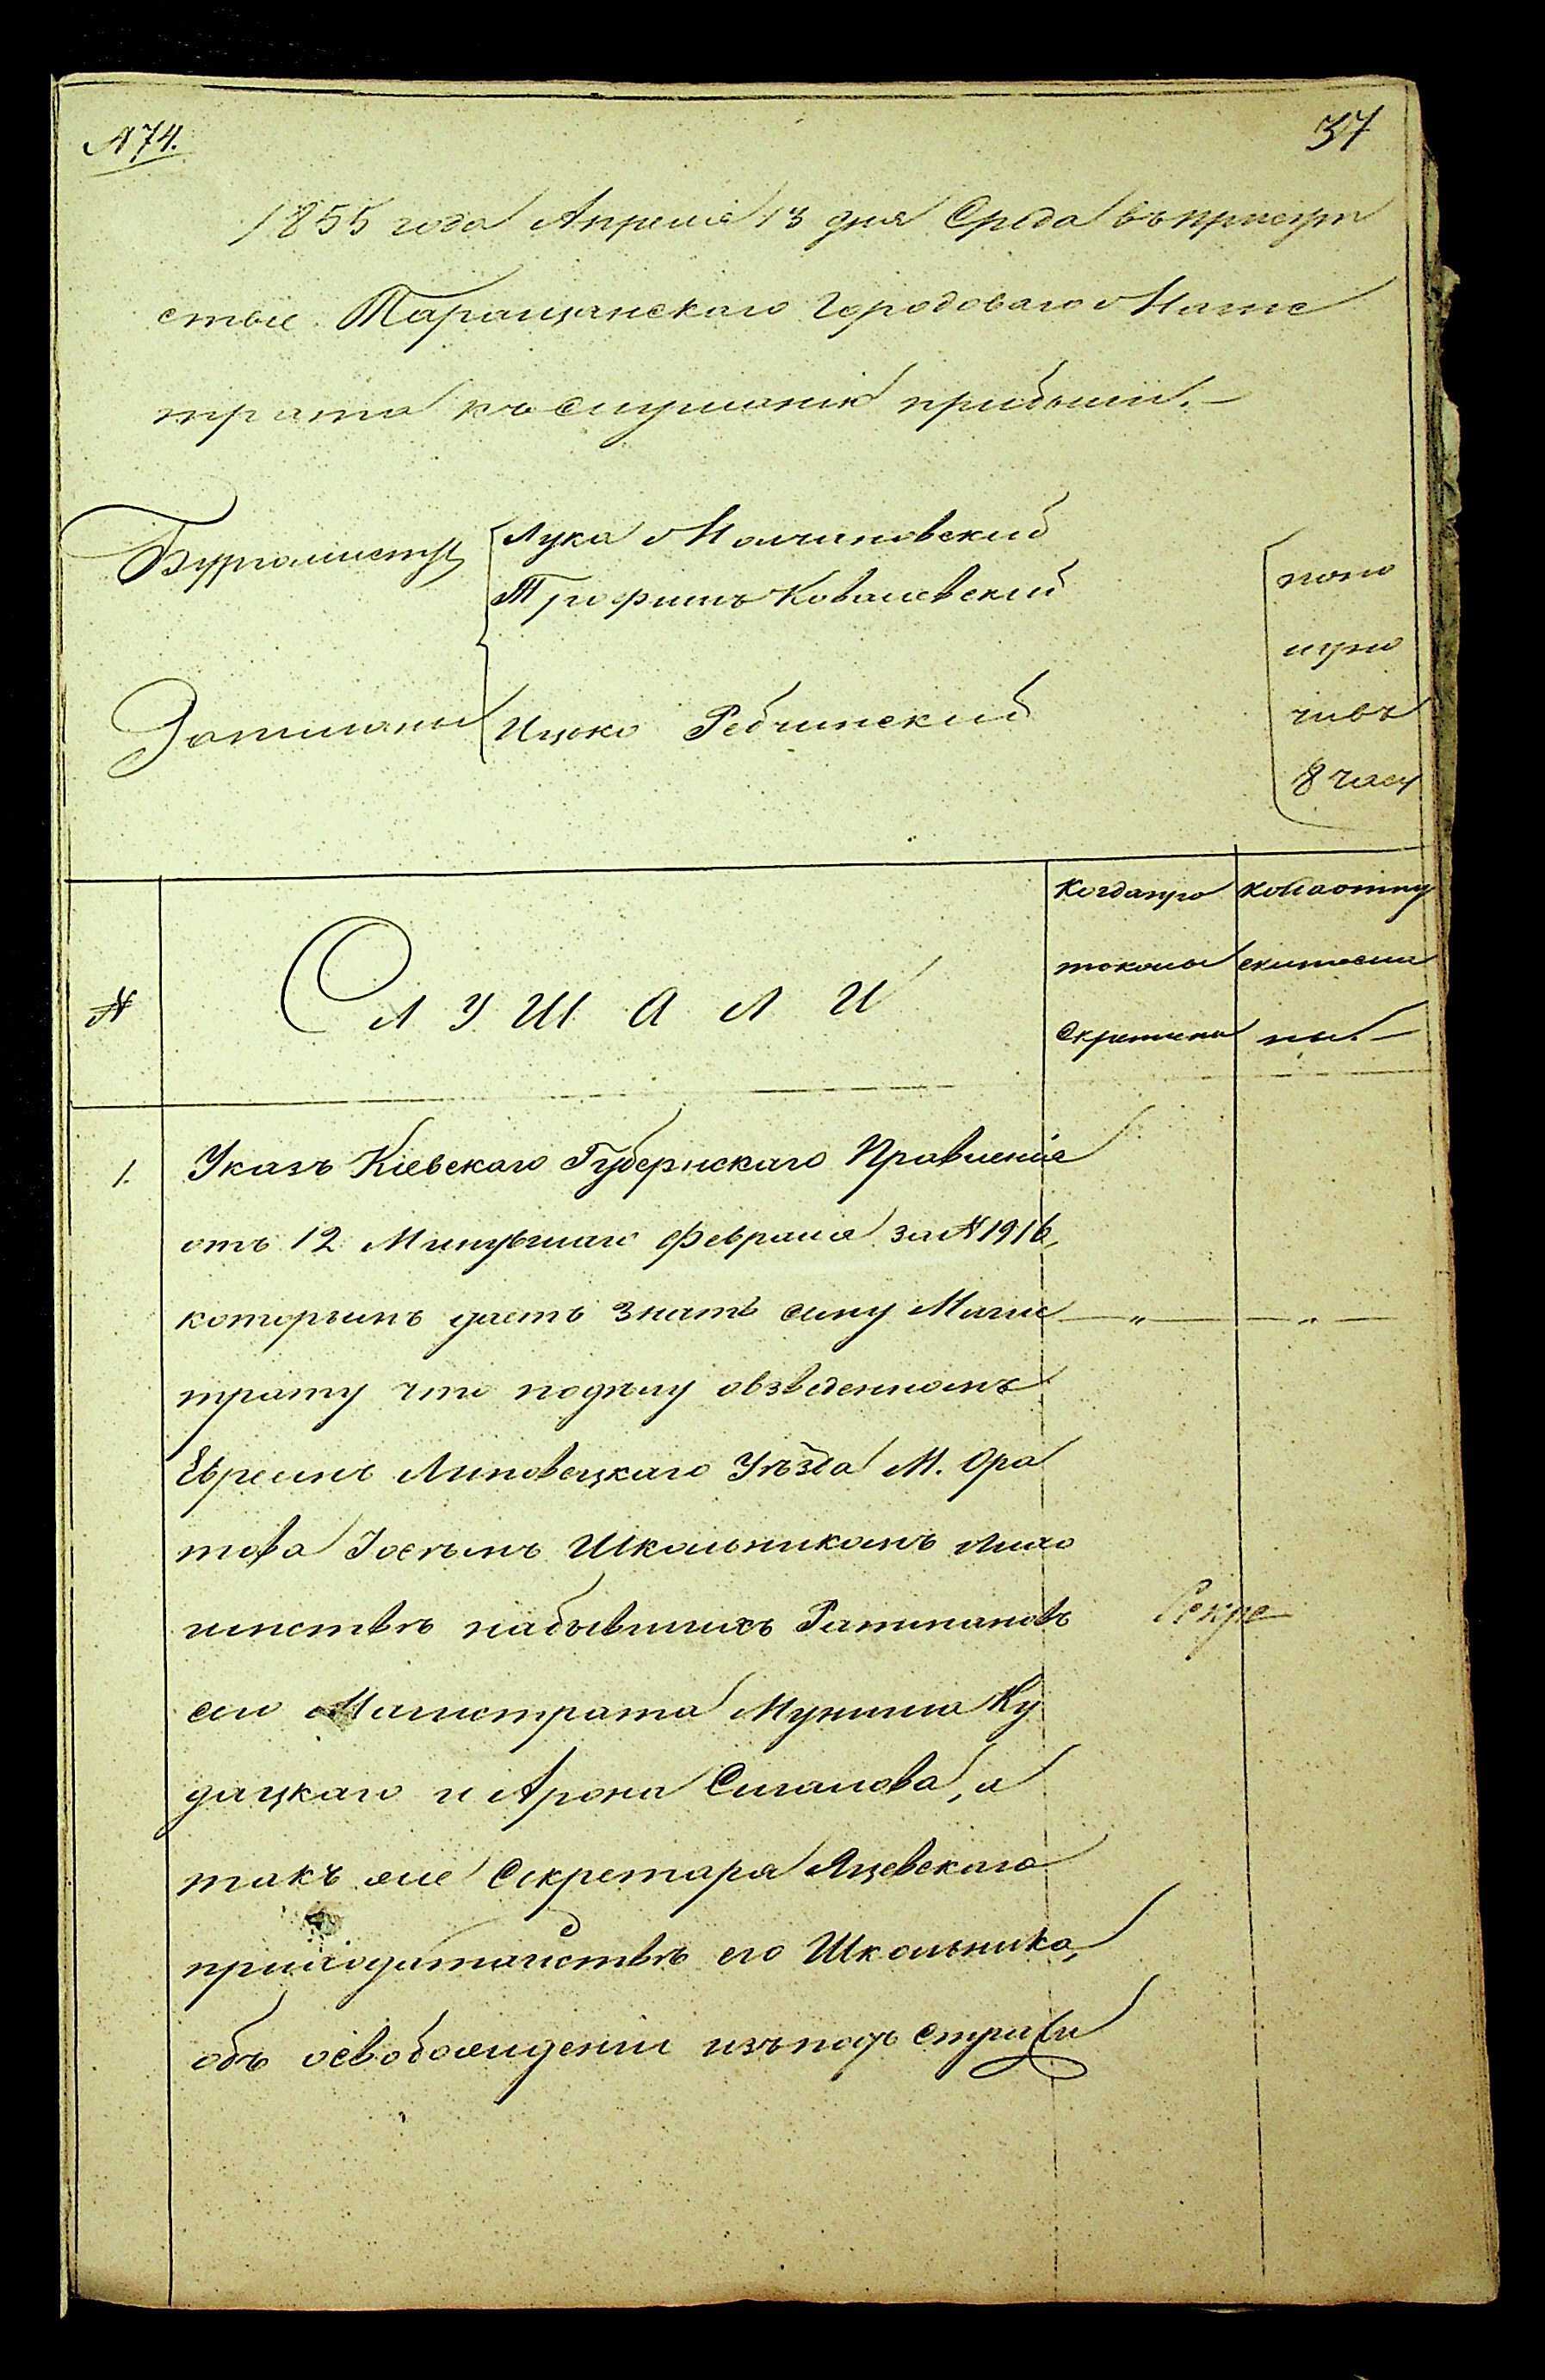 № 74.
37
1855 года Апреля 13 дня Среда въ присут
ствіе Таращанскаго Городоваго Магис
трата къ слушанію прибыли.—
Бургомистры
Лука Молчановский
Трофимъ Ковалевский
Ратманы
Ицко Ребчинский
попо
луно
чивъ
8 часу
№
Слушали
Когда про
токолы
Скреплены
когда отпу
ски посла
ны.—
1.
Указъ Кіевскаго Губернскаго Правленія
отъ 12 Минувшаго Февраля за № 1916,
которымъ даетъ знать сему Магис
трату что по делу о взведенномъ
Евреемъ Липовецкаго Уѣзда М. Ора
това Іосемъ Школьникомъ лихо
имствѣ на бывшихъ Ратмановъ
сего Магистрата Муниша Ку
дацкаго и Арона Сигалова, а
такъ же Секретаря Яцевскаго
при ходатайствѣ его Школьника,
объ освобожденіи изъ подъ стражи
Секре